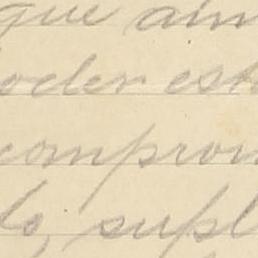 que ain
oder est
comprom
do, supl